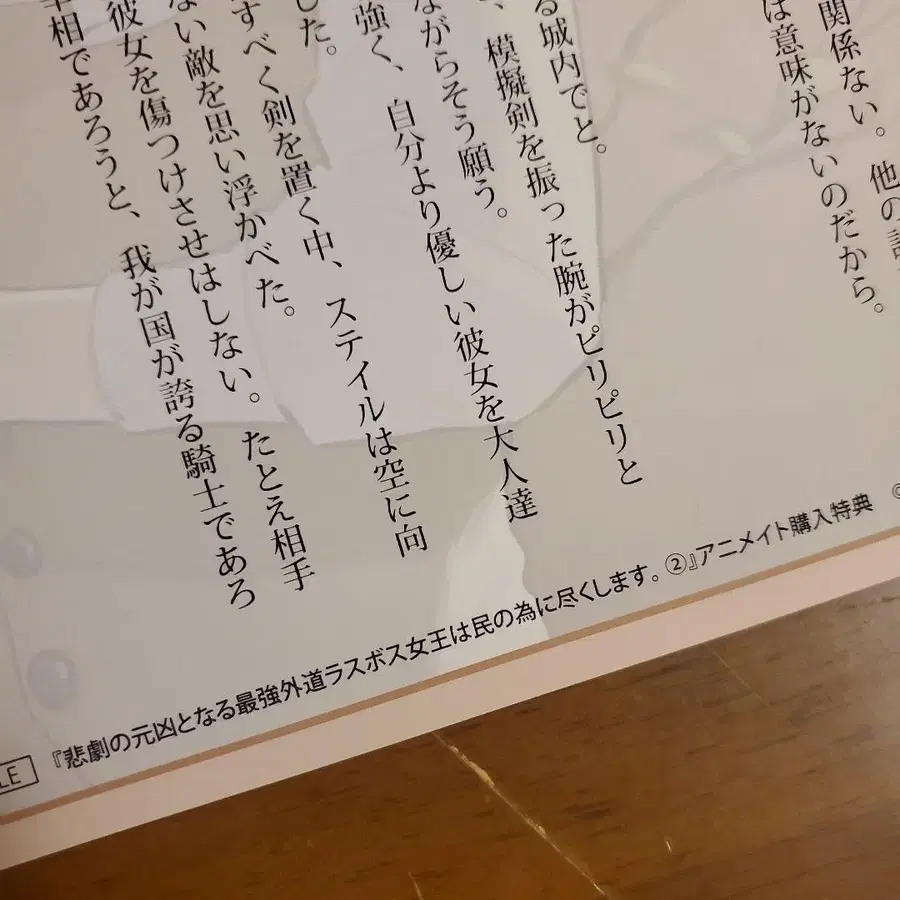 関係ない。他の
は意味がないのだから。
る城内でと。
、模擬剣を振った腕がピリピリと
ながらそう願う。
強く、自分より優しい彼女を大人達
した。
すべく剣を置く中、スティルは空に向
ない敵を思い浮かべた。
彼女を傷つけさせはしない。たとえ相手
相であろうと、我が国が誇る騎士であろ
LE
『悲劇の元凶となる最強外道ラスボス女王は民の為に尽くします。②』アニメイト購入特典 ©